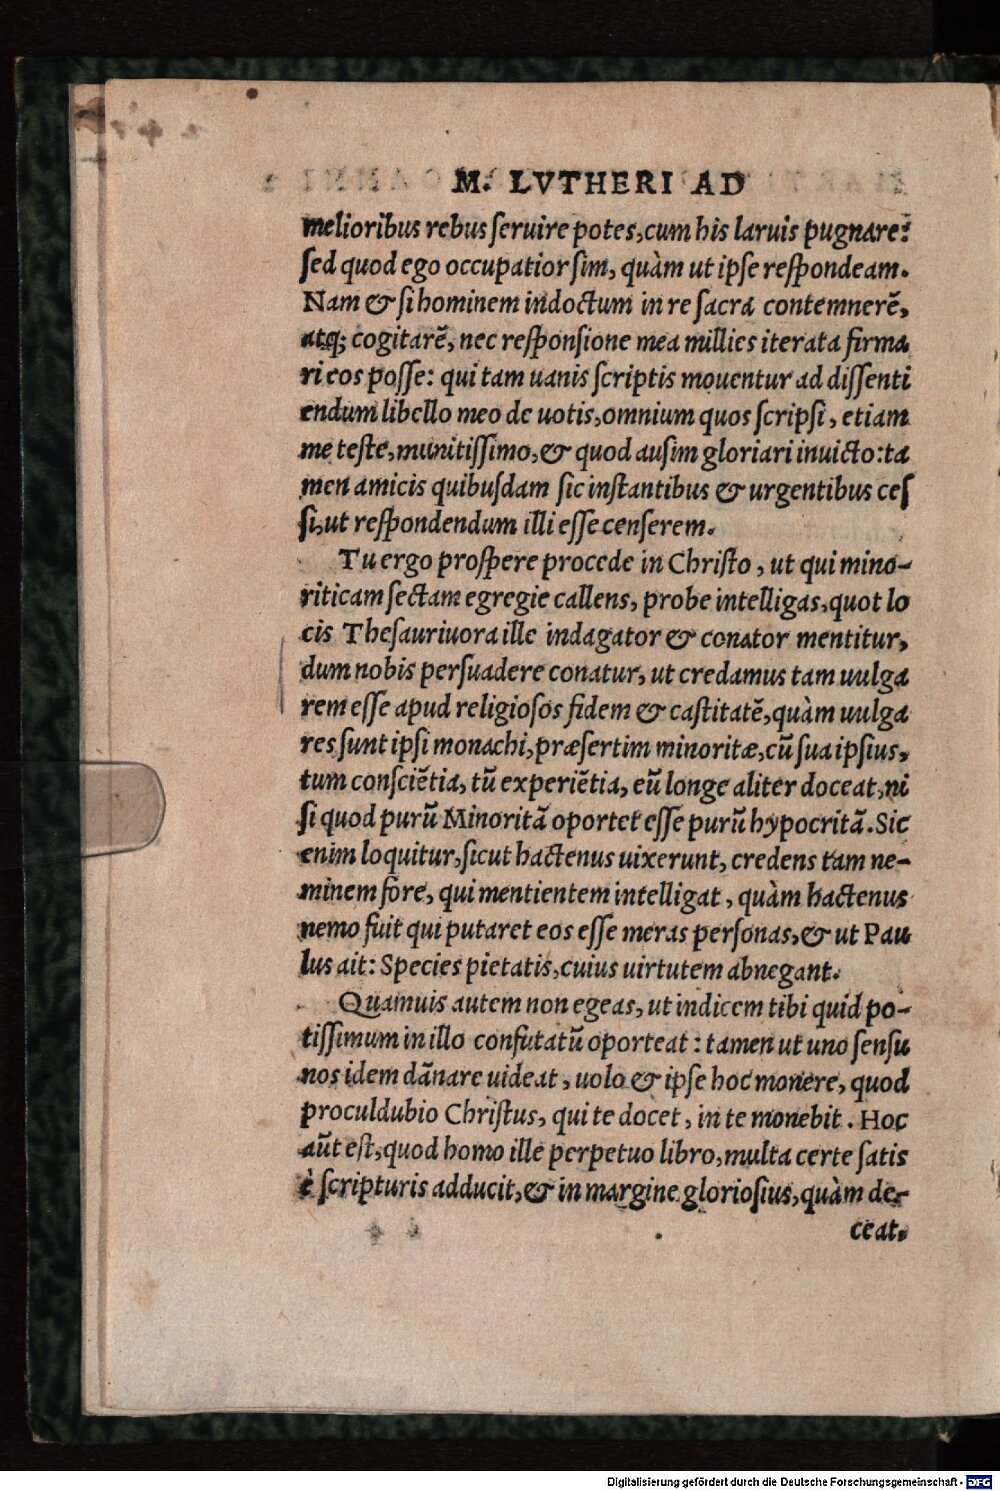 M. LVTHERI AD
melioribus rebus ſeruire potes, cum his laruis pugnare?
ſed quod ego occupatior ſim, quàm ut ipſe reſpondeam.
Nam & ſi hominem indoctum in re ſacra contemnerē,
atq; cogitarē, nec reſponſione mea millies iterata firma
ri eos poſſe: qui tam uanis ſcriptis mouentur ad diſſenti
endum libello meo de uotis, omnium quos ſcripſi, etiam
me teſte, munitiſſimo, & quod auſim gloriari inuicto: ta
men amicis quibuſdam ſic inſtantibus & urgentibus ceſ
ſi, ut reſpondendum illi eſſe cenſerem.
Tu ergo proſpere procede in Chriſto, ut qui mino-
riticam ſectam egregie callens, probe intelligas, quot lo
cis Theſauriuora ille indagator & conator mentitur,
dum nobis perſuadere conatur, ut credamus tam uulga
rem eſſe apud religioſos fidem & caſtitatē, quàm uulga
res ſunt ipſi monachi, præſertim minoritæ, cū ſua ipſius,
tum conſciētia, tū experiētia, eū longe aliter doceat, ni
ſi quod purū Minoritā oportet eſſe purū hypocritā. Sic
enim loquitur, ſicut hactenus uixerunt, credens tam ne-
minem fore, qui mentientem intelligat, quàm hactenus
nemo fuit qui putaret eos eſſe meras perſonas, & ut Pau
lus ait: Species pietatis, cuius uirtutem abnegant.
Quamuis autem non egeas, ut indicem tibi quid po-
tiſſimum in illo confutatū oporteat: tamen ut uno ſenſu
nos idem dānare uideat, uolo & ipſe hoc monere, quod
proculdubio Chriſtus, qui te docet, in te monebit. Hoc
aūt eſt, quod homo ille perpetuo libro, multa certe ſatis
è ſcripturis adducit, & in margine glorioſius, quàm de-
ceat,
Digitalisierung gefördert durch die Deutsche Forschungsgemeinschaft - DFG